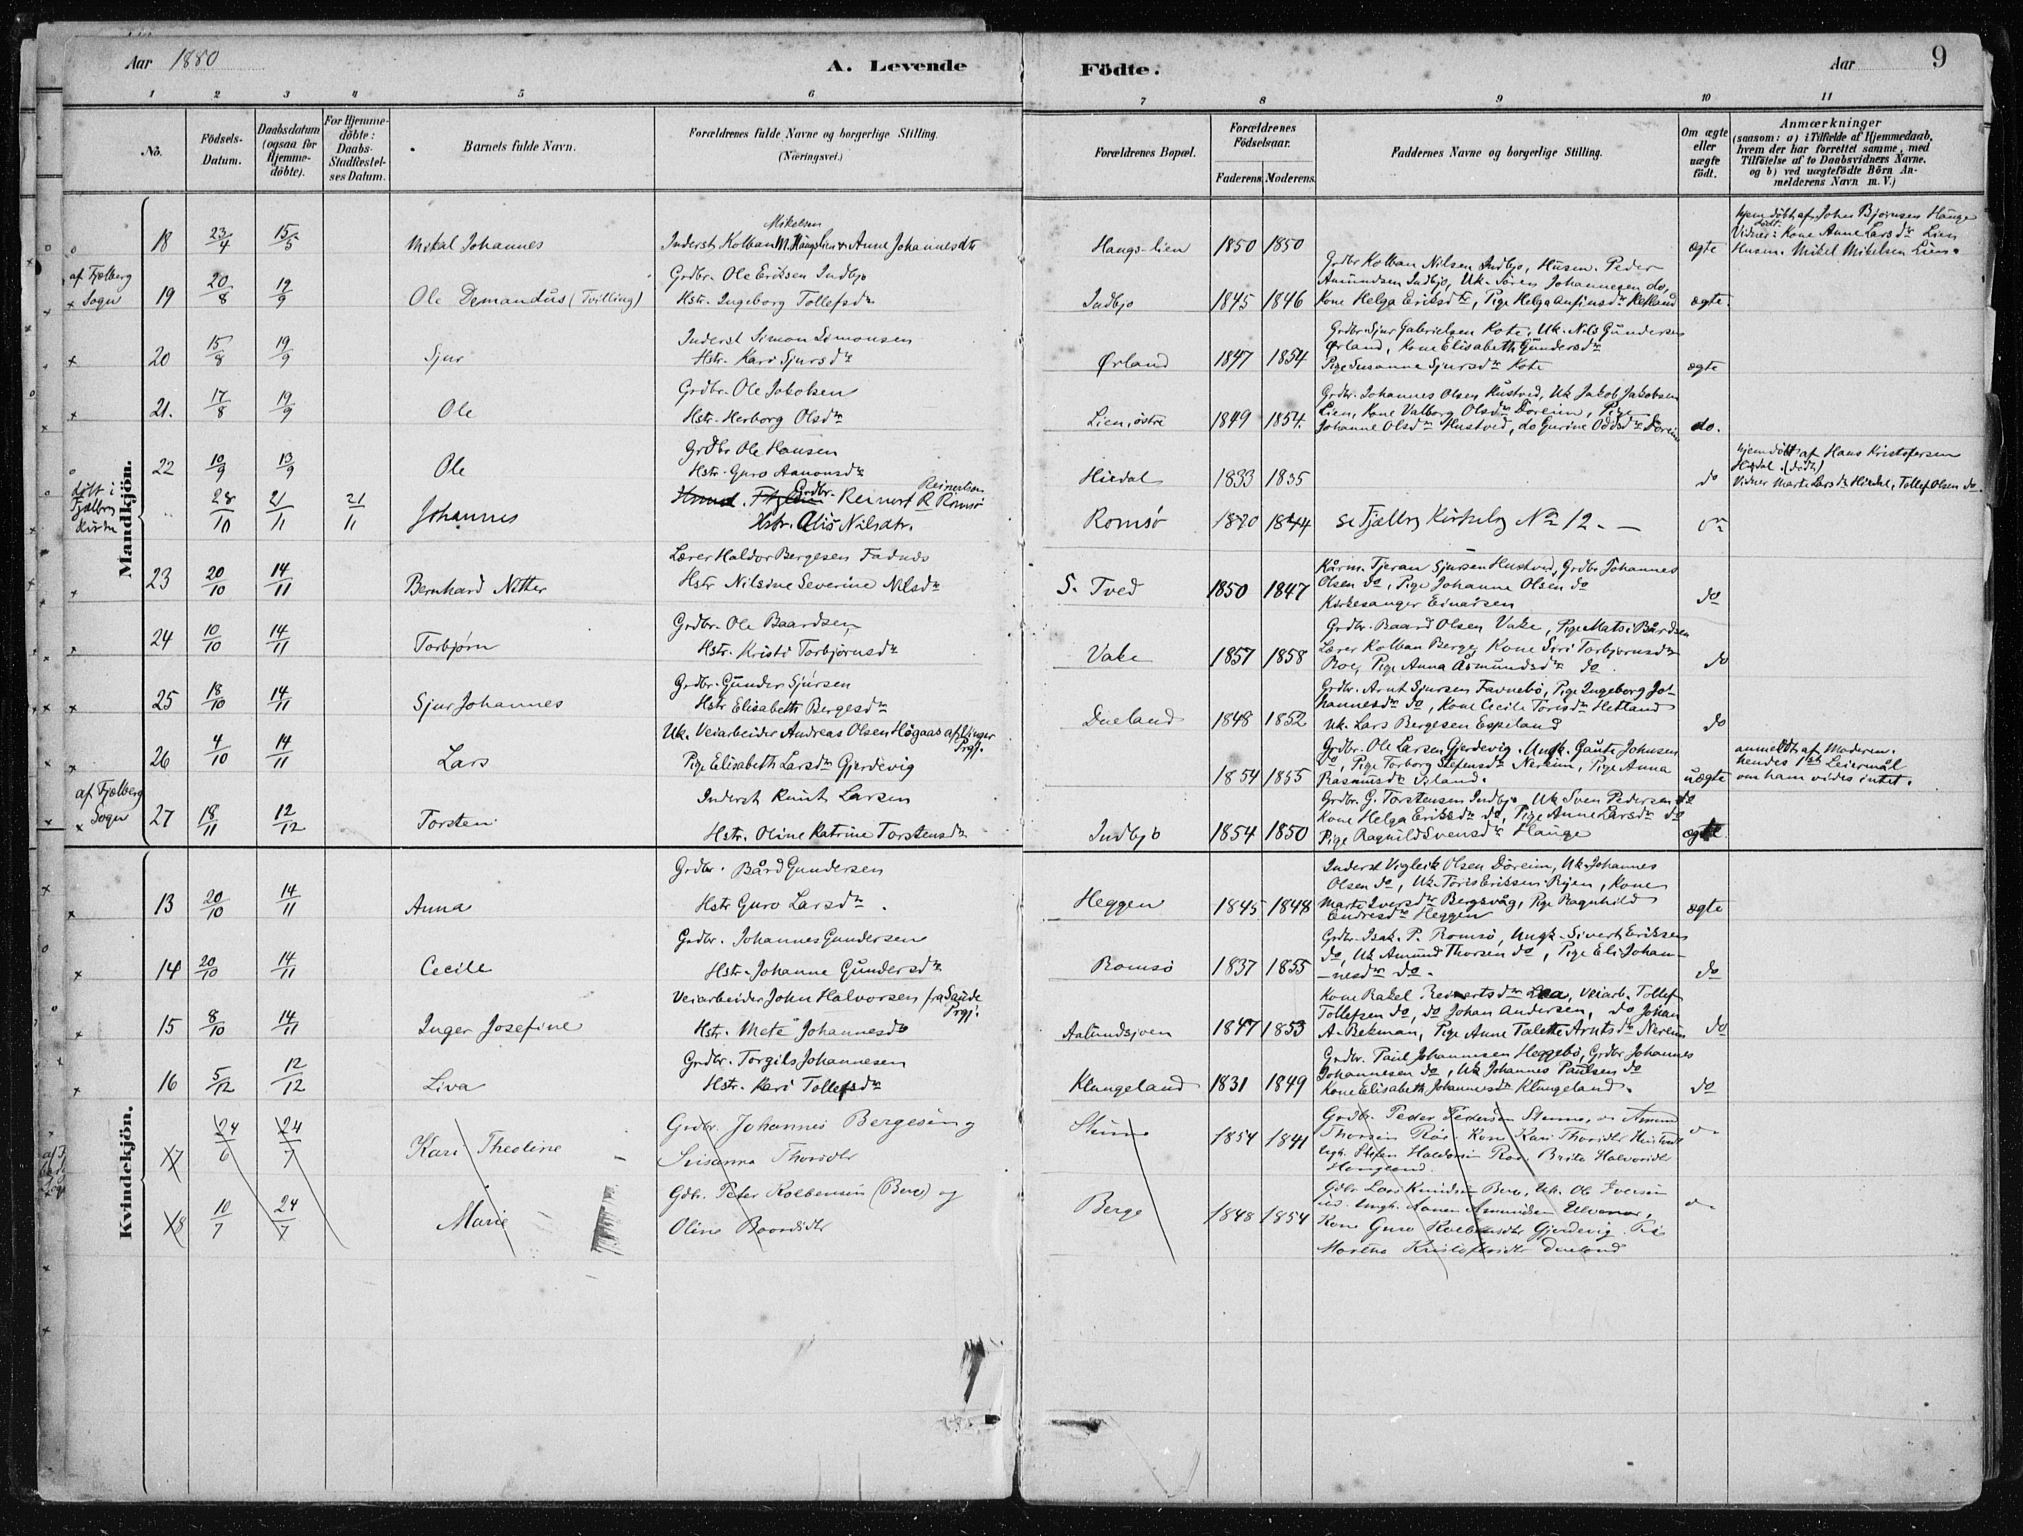 Aar 1880
A. Levende Födte.
Aar
9
1 2 3 4 5 6 7 8 9 10 11
No.
Födsels-Datum.
Daabsdatum (ogsaa for Hjemme-döbte).
For Hjemme-döbte: Daabs-Stadfæstel-ses Datum.
Barnets fulde Navn.
Forældrenes fulde Navne og borgerlige Stilling.
(Næringsvei.)
Forældrenes Bopæl.
Forældrenes Födselsaar.
Faderens. Moderens.
Faddernes Navne og borgerlige Stilling.
Om ægte eller uægte födt.
Anmærkninger
(saasom: a) i Tilfælde af Hjemmedaab, hvem der har forrettet samme, med Tilföielse af to Daabsvidners Navne. og b) ved uægtefödte Börn An-melderens Navn m. V.)
Mandkjön.
18 23/4 15/5 Mikal Johannes
Mikelsen
Inderst Kolban M. Haugslien & Anne Johannesdtr
Haugs-lien 1850 1850 ægte
hjemdöbt af John Bjørnsen Hauge
Vidner: Kone Anne Larsdr Lien
Husm. Mikel Mikelsen Lien.
af Fjelberg Sogn
19 20/8 19/9 Ole Demandus (Tvilling)
Grdbr. Ole Eriksen Indbjo
Hstr. Ingeborg Tollefsdr
Indbjo 1845 1846
Grdbr Kolban Nilsen Indbjo, Husm. Peder
Amundsen Indbjo, Uk. Søren Johannesen do,
Kone Helga Eriksdtr, Pige Helga Anfinsdr Refland
ægte.
20 15/8 19/9 Sjur
Inderst Simon Simonsen
Hstr. Kari Sjursdr
Ørland 1847 1854
Grdbr. Sjur Gabrielsen Kote, Uk. Nils Gundersen
Ørland, Kone Elisabeth Gundersdr
Pige Susanne Sjursdr Kote
ægte
21. 17/8 19/9 Ole
Grdbr. Ole Jakobsen
Hstr. Herborg Olsdr
Lien, östre 1849 1854.
Grdbr. Johannes Olsen Hustved, Uk Jakob Jakobsen
Lien, Kone Valborg Olsdr Doreim, Pige
Johanne Olsdr Hustved, do Gurine Oddsdr Doreim
do.
22 10/9 13/9 Ole
Grdbr Ole Hansen
Hstr. Guro Aamonsdr
Hirdal 1833 1835 do
hjemdöbt af Hans Kristofersen
Hirdal. (död)
Vidner Marta Larsdr Hirdal, Tollef Olsen do.
döbt i Fjælberg Kirke
28/10 21/11 21/11 Johannes
Grdbr. Reinert R Romsö
Reinertsen
Hstr. Alis Nilsdtr.
Romsö 1820 1844 se Fjælberg Kirkebog No 12. —
23 20/10 14/11 Bernhard Netter
Lærer Haldor Bergesen Fadnes
Hstr Nilsine Severine Nilsdr
S. Tved 1850 1847
Kårm. Tjeran Sjursen Hustved, Grdbr Johannes
Olsen do, Pige Johanne Olsen do
Kirkesanger Einarsen
do
24 10/10 14/11 Torbjørn
Grdbr. Ole Baardsen,
Hstr. Kristi Torbjørnsdr
Vake 1857 1858
Grdbr. Baard Olsen Vake, Pige Matsi Bårdsen
Lærer Kolban Berge, Kone Siri Torbjørnsdr
Boe, Pige Anna Åsmundsdr do
do
25 18/10 14/11 Sjur Johannes
Grdbr. Gunder Sjursen
Hstr Elisabeth Bergesdr
Dueland 1848 1852
Grdbr. Arnt Sjursen Favnebö, Pige Ingeborg Jo-
hannesdr do, Kone Cecile Torisdr Hetland
Uk. Lars Bergesen Espeland
do
26 4/10 14/11 Lars
Uk. Veiarbeider Andreas Olsen Høgaas af Vinger Prgj.
Pige Elisabeth Larsdr Gjerdevig
1854 1855
Grdbr. Ole Larsen Gjerdevig. Ungk. Gaute Johnsen
do, Pige Torborg Stefensdr Nereim, Pige Anna
Rasmusdr Oeland.
uægte
anmeldt af Moderen.
hendes 1ste Leiermål
om ham vides intet.
af Fjælberg Sogn
27 18/11 12/12 Torsten
Inderst Knut Larsen
Hstr. Oline Katrine Torstensdr
Indbjo 1854 1850
Grdbr. G. Torstensen Indbjo, Uk Sven Pedersen do
Kone Helga Eriksdr do, Pige Anne Larsdr do
Pige Ragnild Svensdr Hauge
ægte.
Kvindekjön.
13 20/10 14/11 Anna
Grdbr. Bård Gundersen
Hstr Guro Larsdr.
Heggen 1845 1848
Inderst Vigleik Olsen Döreim, Uk. Johannes
Olsen do, Uk. Toris Eriksen Ryen, Kone
Marte Iversdr Bergsvåg, Pige Ragnhild
Endresdr Heggen
ægte
14 20/10 14/11 Cecile
Grdbr. Johannes Gundersen
Hstr. Johanne Gundersdr
Romsö 1837 1855
Grdbr. Isak P. Romsö, Ungk. Sivert Eriksen
do, Uk Amund Thorsen do, Pige Eli Johan-
nesdr do.
do
15 8/10 14/11 Inger Josefine
Veiarbeider John Halvorsen fra Saude Prgj.
Hstr. Mete Johannesdr
Aalundsjoen 1847 1853
Kone Rakel Reinertsdr Lea, Veiarb. Tollef
Tollefsen do, do Johan Andersen, do Johan
A. Bekman, Pige Anne Talette Arntsdr Nereim
do
16 5/12 12/12 Liva
Grdbr. Torgils Johannesen
Hstr. Kari Tollefsdr
Klungeland 1831 1849
Grdbr. Paul Johannesen Heggebö, Grdbr Johannes
Johannesen do, Uk Johannes Paulsen do
Kone Elisabeth Johannesdr Klungeland.
do
7 24/6 24/7 Kari Theoline
Grdbr. Johannes Bergesen og
Susanna Thorsdtr
1854 1841
Grdbr. Peder Pedersen
Kone Kari Thorsdtr
8 10/7 24/7 Marie
Gdbr. Peter Kolbensen (Berge) og
Oline Baardsdtr
Berge 1848 1854
Gdbr. Lars Knudsen Berge, Uk. Ole Iversen
Kone Guro Kolbensdtr Gjerdevig
Martha Kristofersdtr Dueland